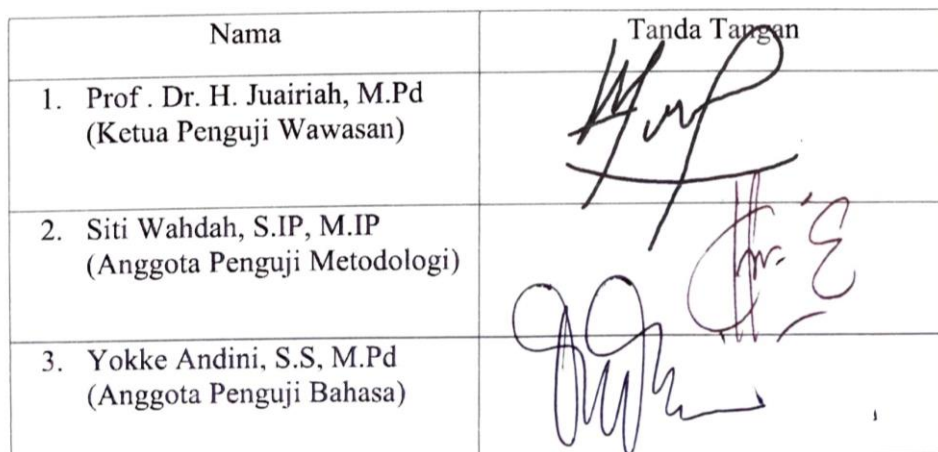 Nama
Tanda Tangan
1. Prof . Dr. H. Juairiah, M.Pd
(Ketua Penguji Wawasan)
2. Siti Wahdah, S.IP, M.IP
(Anggota Penguji Metodologi)
3. Yokke Andini, S.S, M.Pd
(Anggota Penguji Bahasa)